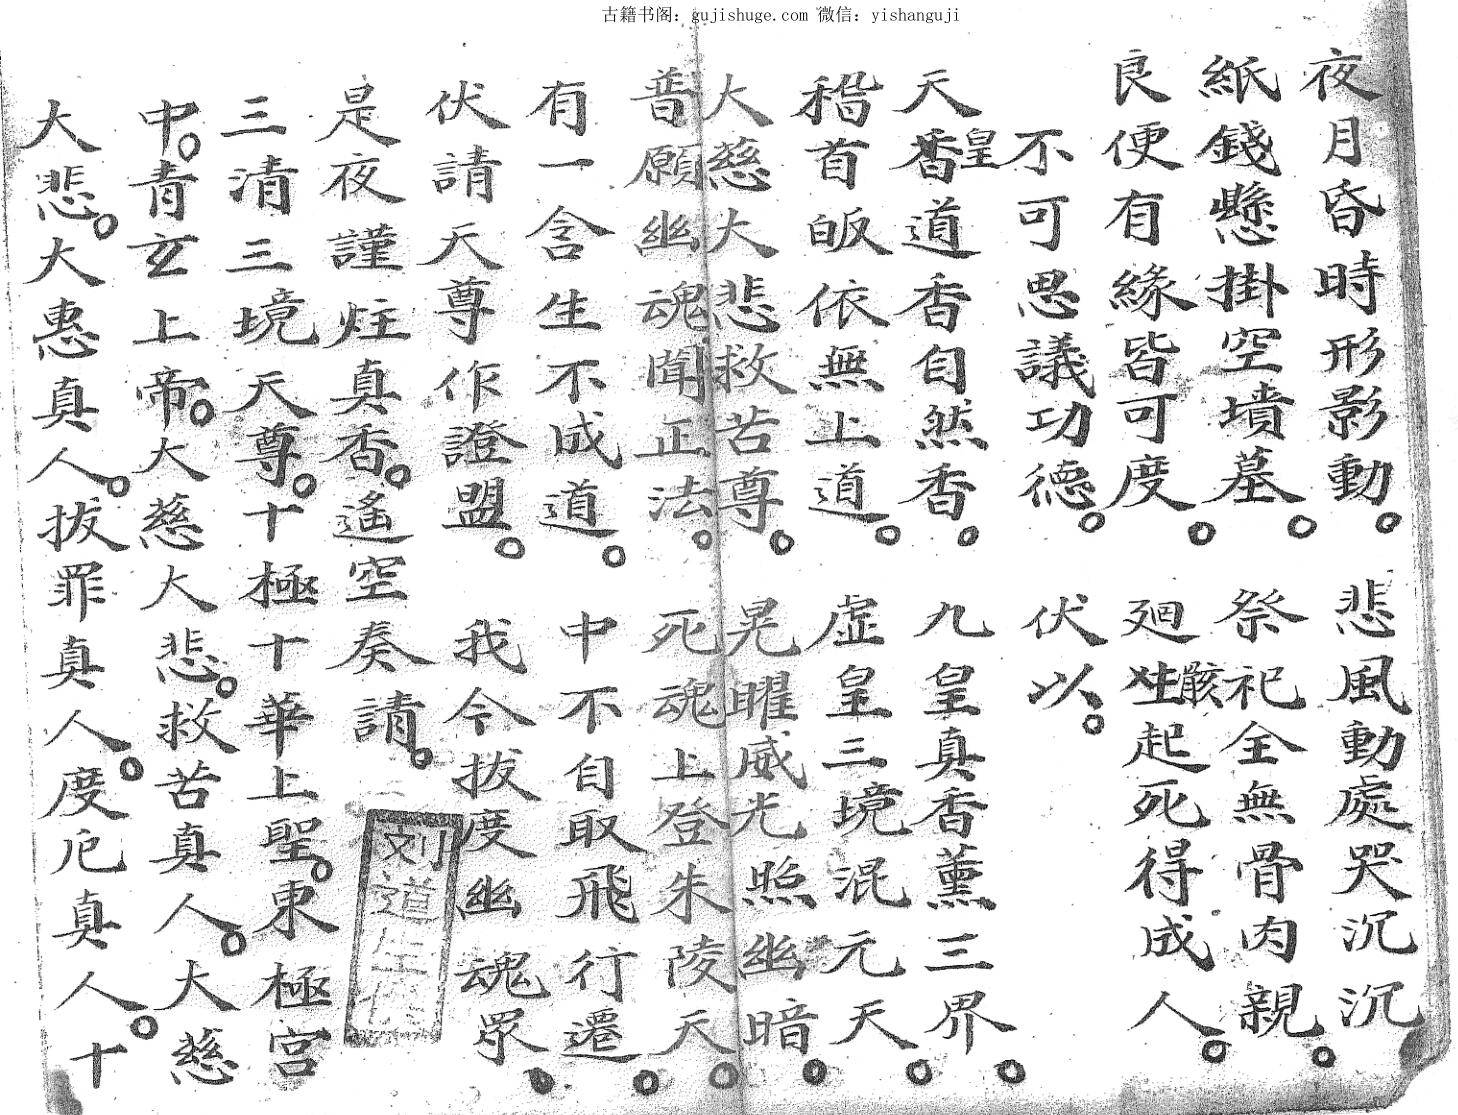 古籍书阁：gujishuge.com 微信：yishanguji
夜月昏時形影動。悲風動處哭沉沉
紙錢懸掛空墳墓。祭祀全無骨肉親。
良便有緣皆可度。廻骸起死得成人。
不可思議功德。伏以。
天皇香道香自然香。九皇真香薰三界。
稽首皈依無上道。虛皇三境混元天。
大慈大悲救苦尊。晃曜威光照幽暗。
普願幽魂聞正法。死魂上登朱陵天。
有一含生不成道。中不自取飛行遷。
伏請天尊作證盟。我今拔度幽魂眾。
是夜謹炷真香。遙空奏請。
三清三境天尊。十極十華上聖。東極宮
中。青玄上帝。大慈大悲。救苦真人。大慈
大悲。大惠真人。拔罪真人。度厄真人。十
刘道生